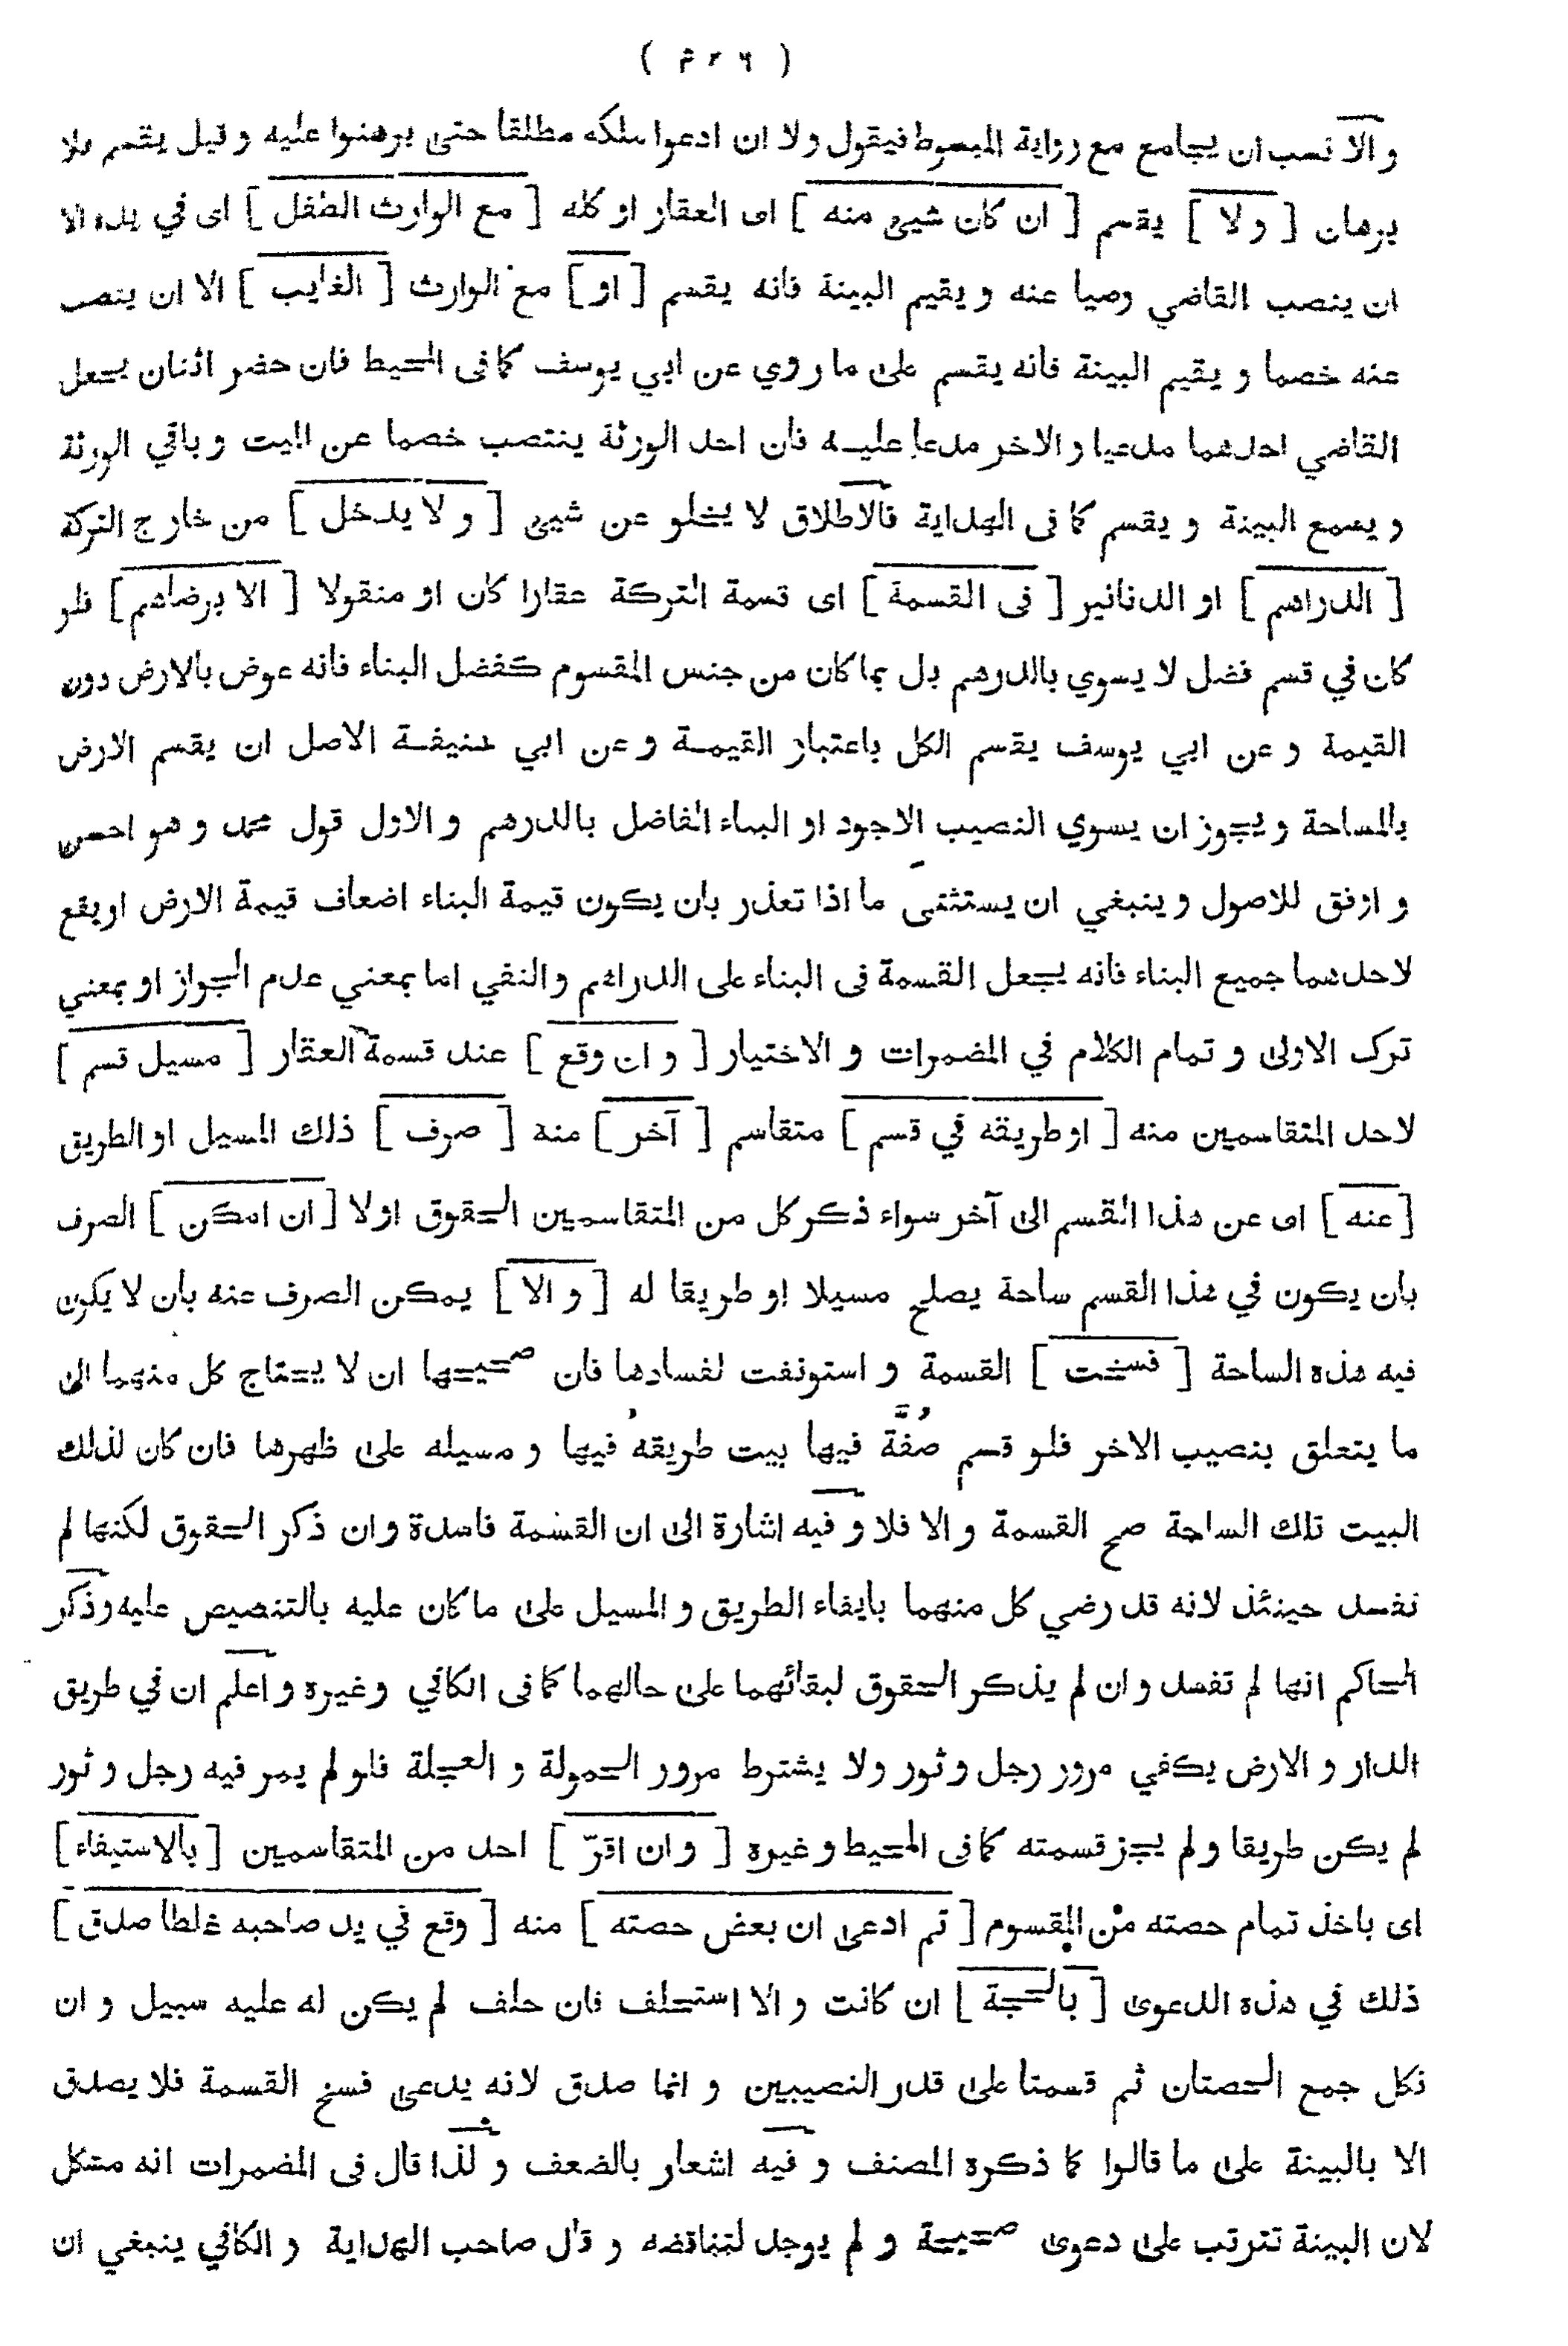 ( ٣٢٦ )
و الا نسب ان يجامع مع رواية المبسوط فيقول ولا ان ادعوا ملكه مطلقا حتى برهنوا عليه و قيل يقسم بلا
برهان [ و لا ] يقسم [ ان كان شيئ منه ] اى العقار او كله [ مع الوارث الطفل ] اى في يده الا
ان ينصب القاضي وصيا عنه و يقيم البينة فانه يقسم [ او ] مع الوارث [ الغايب ] الا ان ينصب
عنه خصما و يقيم البينة فانه يقسم على ما روي عن ابي يوسف كما فى المحيط فان حضر اثنان يجعل
القاضي احدهما مدعيا و الاخر مدعا عليه فان احد الورثة ينتصب خصما عن الميت و باقي الورثة
و يسمع البينة و يقسم كما فى الهداية فالاطلاق لا يخلو عن شيئ [ و لا يدخل ] من خارج التركة
[ الدراهم ] او الدنانير [ فى القسمة ] اى قسمة التركة عقارا كان او منقولا [ الا برضاهم ] فلو
كان في قسم فضل لا يسوي بالدرهم بل بما كان من جنس المقسوم كفضل البناء فانه عوض بالارض دون
القيمة و عن ابي يوسف يقسم الكل باعتبار القيمة و عن ابي حنيفة الاصل ان يقسم الارض
بالمساحة و يجوز ان يسوي النصيب الاجود او البناء الفاضل بالدرهم و الاول قول محمد و هو احسن
و اوفق للاصول و ينبغي ان يستثنى ما اذا تعذر بان يكون قيمة البناء اضعاف قيمة الارض او يقع
لاحدهما جميع البناء فانه يجعل القسمة فى البناء على الدراهم و النفي اما بمعني عدم الجواز او بمعني
ترك الاولى و تمام الكلام في المضمرات و الاختيار [ و ان وقع ] عند قسمة العقار [ مسيل قسم ]
لاحد المتقاسمين منه [ او طريقه في قسم ] متقاسم [ آخر ] منه [ صرف ] ذلك المسيل او الطريق
[ عنه ] اى عن هذا القسم الى آخر سواء ذكر كل من المتقاسمين الحقوق اولا [ ان امكن ] الصرف
بان يكون في هذا القسم ساحة يصلح مسيلا او طريقا له [ و الا ] يمكن الصرف عنه بان لا يكون
فيه هذه الساحة [ فسخت ] القسمة و استونفت لفسادها فان صحيحها ان لا يحتاج كل منهما الى
ما يتعلق بنصيب الاخر فلو قسم صُفَّة فيها بيت طريقهُ فيها و مسيله على ظهرها فان كان لذلك
البيت تلك الساحة صح القسمة و الا فلا و فيه اشارة الى ان القسمة فاسدة و ان ذكر الحقوق لكنها لم
تفسد حينئذ لانه قد رضي كل منهما بايفاء الطريق و المسيل على ما كان عليه بالتنصيص عليه و ذكر
الحاكم انها لم تفسد و ان لم يذكر الحقوق لبقائهما على حالهما كما فى الكافي و غيره و اعلم ان في طريق
الدار و الارض يكفي مرور رجل و ثور ولا يشترط مرور الحمولة و العجلة فلو لم يمر فيه رجل و ثور
لم يكن طريقا و لم يجز قسمته كما فى المحيط و غيره [ و ان اقرّ ] احد من المتقاسمين [ بالاستيفاء ]
اى باخذ تمام حصته من المقسوم [ ثم ادعى ان بعض حصته ] منه [ وقع في يد صاحبه غلطا صدق ]
ذلك في هذه الدعوى [ بالحجة ] ان كانت و الا استحلف فان حلف لم يكن له عليه سبيل و ان
نكل جمع الحصتان ثم قسمتا على قدر النصيبين و انما صدق لانه يدعى فسخ القسمة فلا يصدق
الا بالبينة على ما قالوا كما ذكره المصنف و فيه اشعار بالضعف و لذا قال فى المضمرات انه مشكل
لان البينة تترتب على دعوى صحيحة و لم يوجد لتناقضه و قال صاحب الهداية و الكافي ينبغي ان